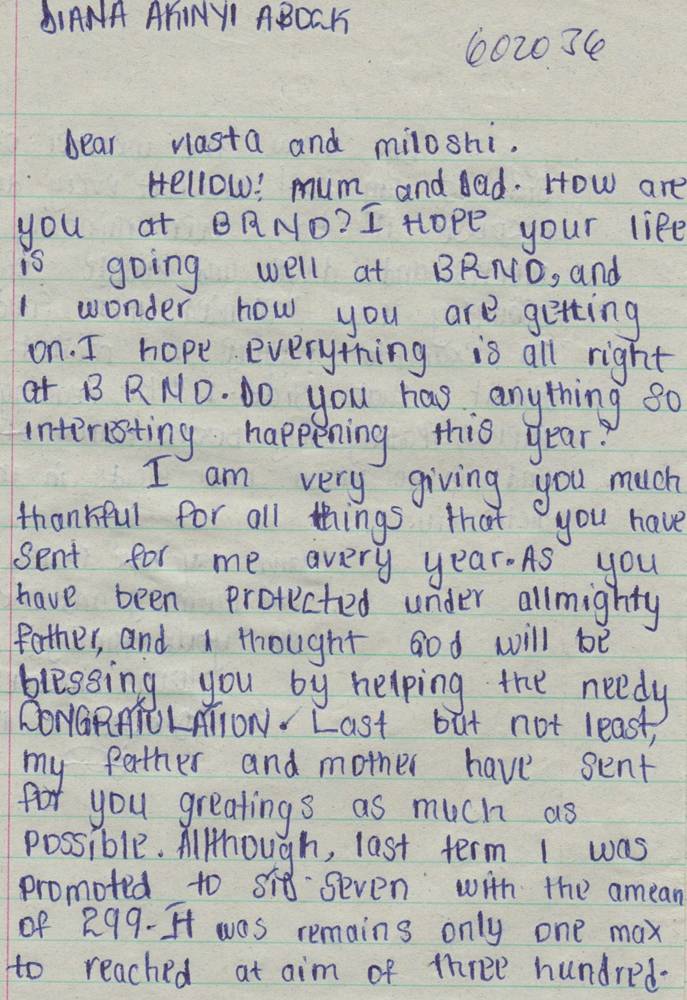 DIANA AKINYI ABOCK
602036
Dear vlasta and miloshi.
Hellow! mum and Dad. How are
you at BRNO? I HOPE your life
is going well at BRNO, and
I wonder how you are getting
on. I hope everything is all right
at BRNO. DO you has anything so
interisting happening this year?
I am very giving you much
thankful for all things that you have
sent for me avery year. AS you
have been protected under allmighty
father, and I thought God will be
blessing you by helping the needy
CONGRATULATION. Last but not least,
my father and mother have sent
for you greatings as much as
possible. Allthough, last term I was
promoted to std seven with the amean
of 299- It was remains only one max
to reached at aim of three hundred.